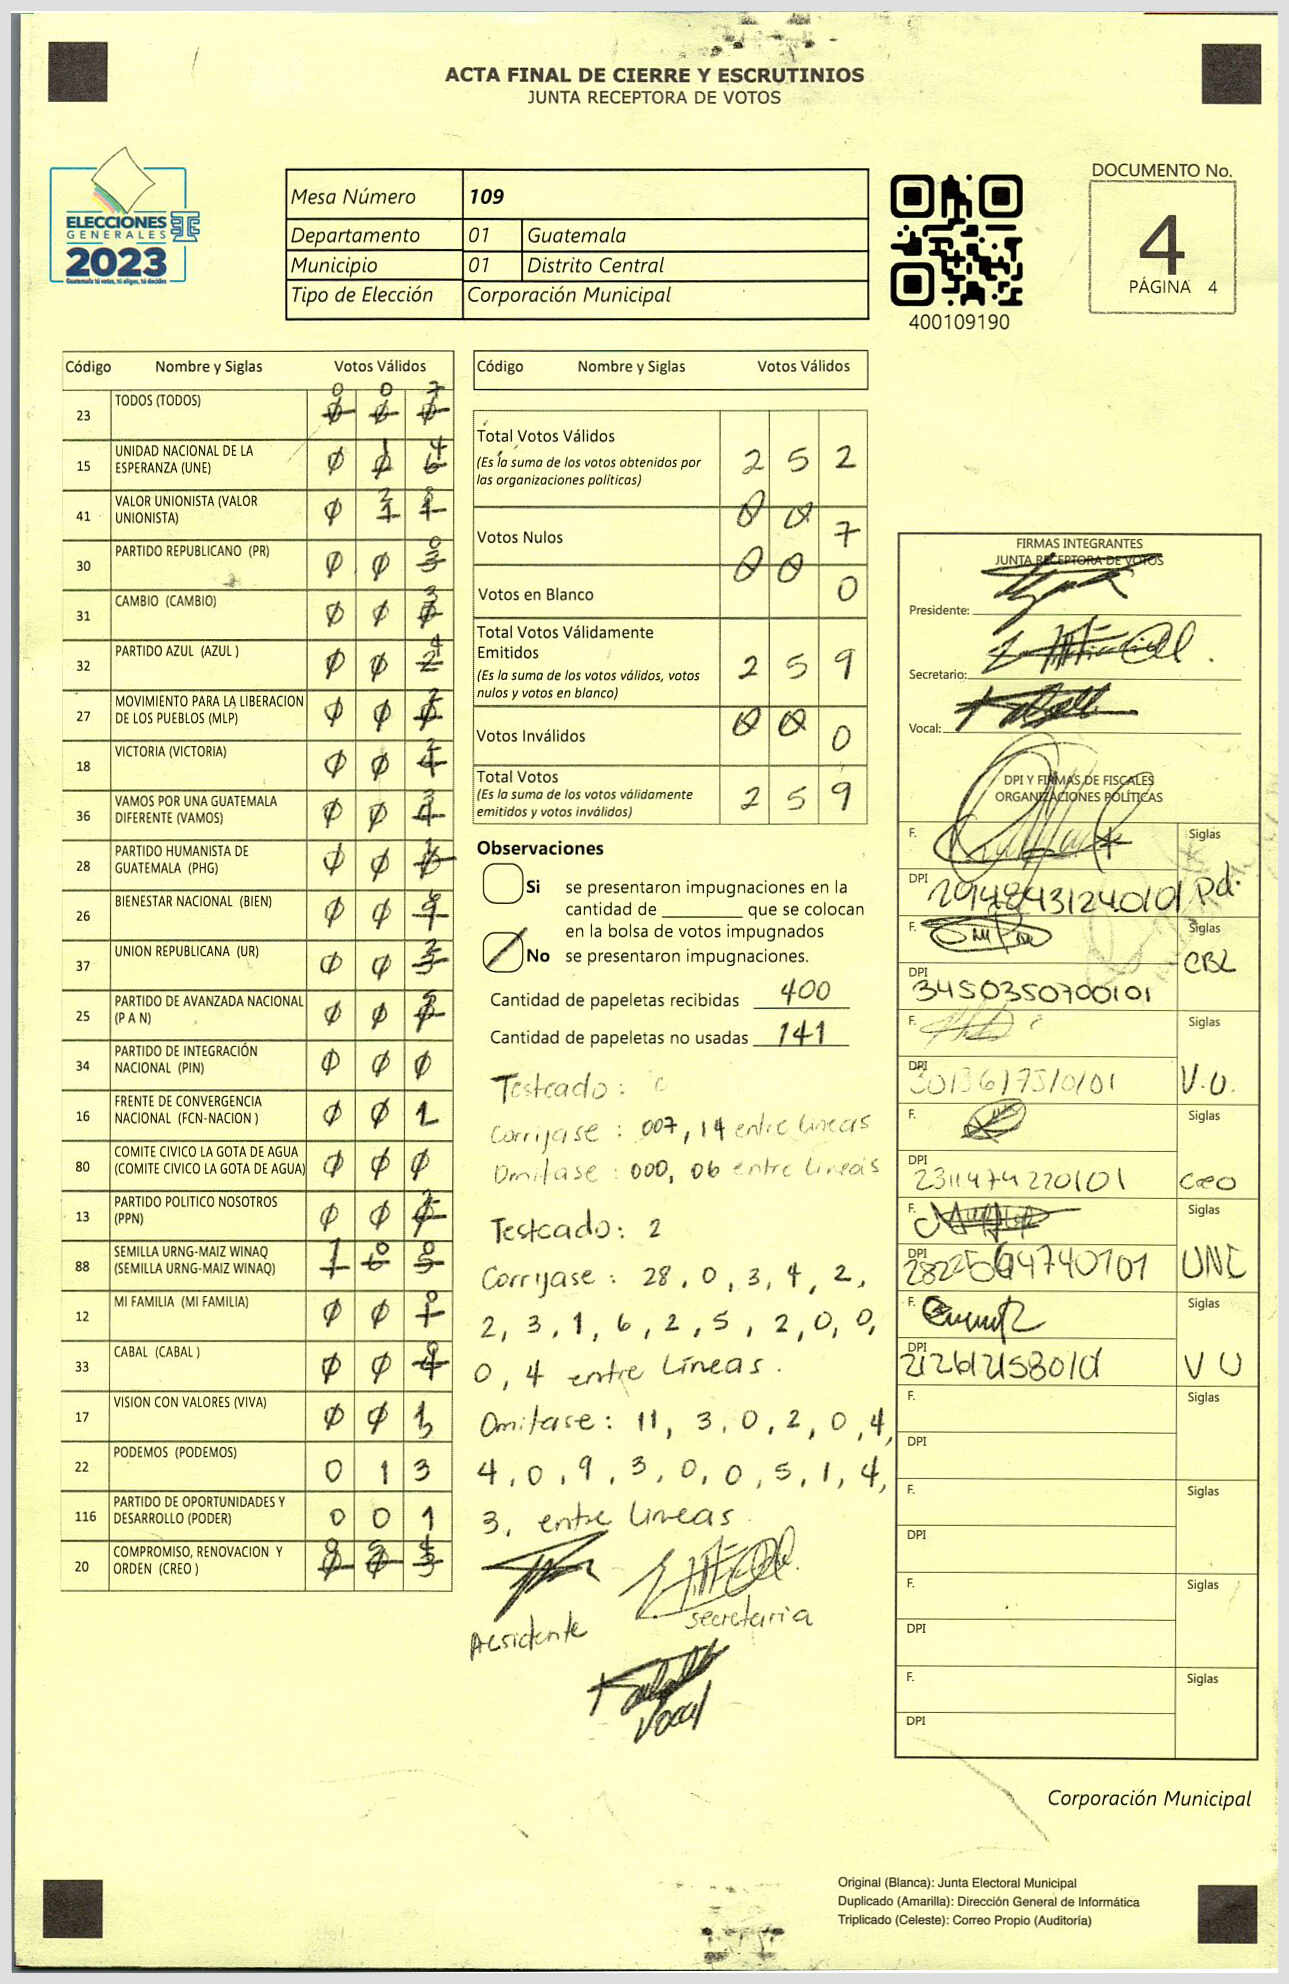 ACTA FINAL DE CIERRE Y ESCRUTINIOS
JUNTA RECEPTORA DE VOTOS
ELECCIONES
GENERALES
2023
Guatemala tú votas, tú eliges, tú decides
Mesa Número 109
Departamento 01 Guatemala
Municipio 01 Distrito Central
Tipo de Elección Corporación Municipal
400109190
DOCUMENTO No.
4
PÁGINA 4
Código Nombre y Siglas Votos Válidos
23 TODOS (TODOS) 0 0 7
15 UNIDAD NACIONAL DE LA
ESPERANZA (UNE) 0 1 4
41 VALOR UNIONISTA (VALOR
UNIONISTA) 0 2 8
30 PARTIDO REPUBLICANO (PR) 0 0 0
31 CAMBIO (CAMBIO) 0 0 3
32 PARTIDO AZUL (AZUL ) 0 0 4
27 MOVIMIENTO PARA LA LIBERACION
DE LOS PUEBLOS (MLP) 0 0 2
18 VICTORIA (VICTORIA) 0 0 2
36 VAMOS POR UNA GUATEMALA
DIFERENTE (VAMOS) 0 0 3
28 PARTIDO HUMANISTA DE
GUATEMALA (PHG) 0 0 1
26 BIENESTAR NACIONAL (BIEN) 0 0 6
37 UNION REPUBLICANA (UR) 0 0 2
25 PARTIDO DE AVANZADA NACIONAL
(P A N) 0 0 5
34 PARTIDO DE INTEGRACIÓN
NACIONAL (PIN) 0 0 0
16 FRENTE DE CONVERGENCIA
NACIONAL (FCN-NACION ) 0 0
80 COMITE CIVICO LA GOTA DE AGUA
(COMITE CIVICO LA GOTA DE AGUA) 0 0 0
13 PARTIDO POLITICO NOSOTROS
(PPN) 0 0 2
88 SEMILLA URNG-MAIZ WINAQ
(SEMILLA URNG-MAIZ WINAQ) 0 0
12 MI FAMILIA (MI FAMILIA) 0 0 0
33 CABAL (CABAL ) 0 0
17 VISION CON VALORES (VIVA) 0 0
22 PODEMOS (PODEMOS) 0 1 3
116 PARTIDO DE OPORTUNIDADES Y
DESARROLLO (PODER) 0 0 1
20 COMPROMISO, RENOVACION Y
ORDEN (CREO )
Código Nombre y Siglas Votos Válidos
Total Votos Válidos 2 5 2
(Es la suma de los votos obtenidos por
las organizaciones políticas)
Votos Nulos 0 0 7
Votos en Blanco 0 0 0
Total Votos Válidamente
Emitidos 2 5 9
(Es la suma de los votos válidos, votos
nulos y votos en blanco)
Votos Inválidos 0 0 0
Total Votos 2 5 9
(Es la suma de los votos válidamente
emitidos y votos inválidos)
Observaciones
Si se presentaron impugnaciones en la
cantidad de que se colocan
en la bolsa de votos impugnados
No se presentaron impugnaciones.
Cantidad de papeletas recibidas 400
Cantidad de papeletas no usadas 141
Testeado:
Corrijase : 007, 14 entre lineas
Omitase : 000, 06 entre lineas
Testeado: 2
Corrijase : 28, 0, 3, 4, 2,
2, 3, 1, 6, 2, 5, 2, 0, 0,
0, 4 entre Líneas.
Omitase: 11, 3, 0, 2, 0, 4,
4, 0, 9, 3, 0, 0, 5, 1, 4,
3, entre lineas
Presidente
secretaria
Vocal
FIRMAS INTEGRANTES
JUNTA RECEPTORA DE VOTOS
Presidente:
Secretario:
Vocal:
DPI Y FIRMAS DE FISCALES
ORGANIZACIONES POLÍTICAS
F. Siglas
DPI 2948431240101 Pd.
F. Siglas
DPI 3450350700101 CBL
F. Siglas
DPI V.U.
F. Siglas
DPI 2311474220101 Creo
F. Siglas
DPI UNE
F. Siglas
DPI V U
F. Siglas
DPI
F. Siglas
DPI
F. Siglas
DPI
F. Siglas
DPI
Corporación Municipal
Original (Blanca): Junta Electoral Municipal
Duplicado (Amarilla): Dirección General de Informática
Triplicado (Celeste): Correo Propio (Auditoría)